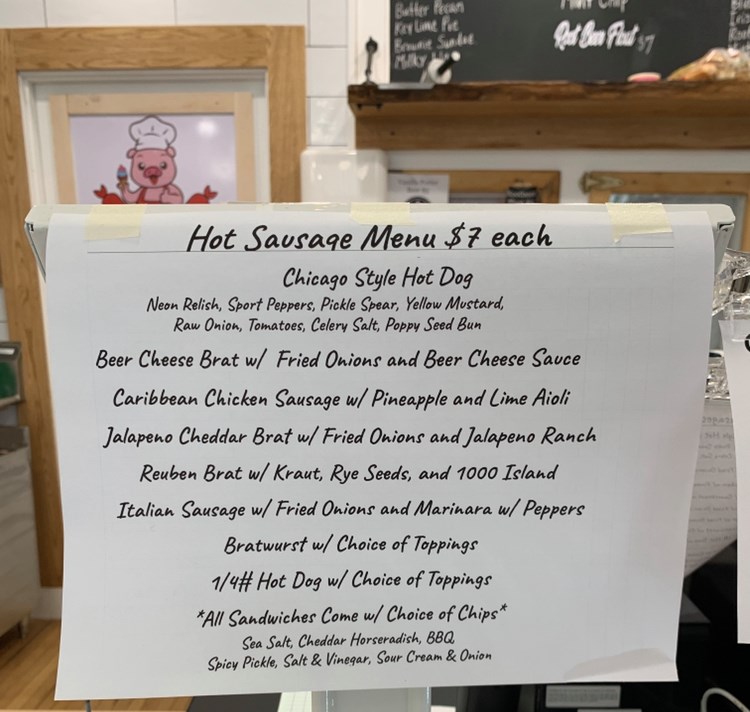 Butter Pecan
Key Lime Pie
Brownie Sundae
Milky
Root Beer Float $7
Hot Sausage Menu $7 each
Chicago Style Hot Dog
Neon Relish, Sport Peppers, Pickle Spear, Yellow Mustard,
Raw Onion, Tomatoes, Celery Salt, Poppy Seed Bun
Beer Cheese Brat w/ Fried Onions and Beer Cheese Sauce
Caribbean Chicken Sausage w/ Pineapple and Lime Aioli
Jalapeno Cheddar Brat w/ Fried Onions and Jalapeno Ranch
Reuben Brat w/ Kraut, Rye Seeds, and 1000 Island
Italian Sausage w/ Fried Onions and Marinara w/ Peppers
Bratwurst w/ Choice of Toppings
1/4# Hot Dog w/ Choice of Toppings
*All Sandwiches Come w/ Choice of Chips*
Sea Salt, Cheddar Horseradish, BBQ
Spicy Pickle, Salt & Vinegar, Sour Cream & Onion